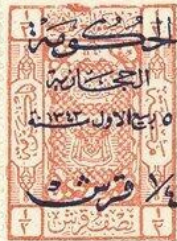 الحكومة
الحجازية
٥ ربيع الاول ١٣٤٣ سنة
١/٤ قرش
1/2 نصف قرش 1/2